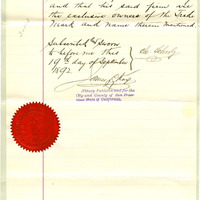 and that his said firm are
the exclusive owners of the Trade
Mark and name therein mentioned.
Subscribed & Sworn
to before me this
19th day of September
1892
Notary Public in and for the
City and County of San Fran-
cisco State of California.